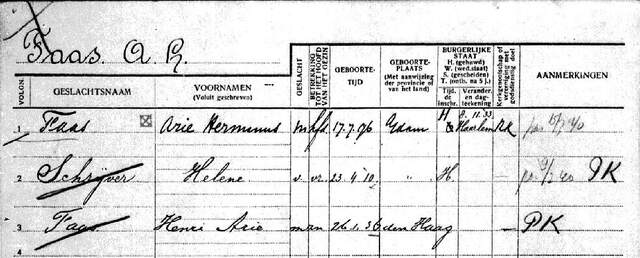 Faas. A. H.
VOLGN. GESLACHTSNAAM VOORNAMEN (Voluit geschreven) GESLACHT BETREKKING TOT HET HOOFD VAN HET GEZIN GEBOORTE-TIJD GEBOORTE-PLAATS (Met aanwijzing der provincie of van het land) BURGERLIJKE STAAT H. (gehuwd) W. (wed.staat) S. (gescheiden) T. (ontb. na 5 j.) Tijd de inschr. Verander- en dag-teekening Kerkgenootschap of godsdienstig doel AANMERKINGEN
1 Faas Arie Herminus m hfd 17.7.76 H 8.11.33 Haarlem RK
2 Schrijver Helene v. vr. 23.4.10 " H —
3 Faas Henri Arie m zn 26.1.36 den Haag — PK
4